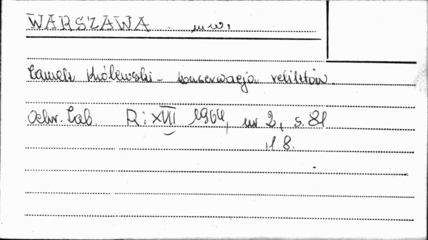 WARSZAWA m.w.
Zamek Królewski - konserwacja reliktów.
Ochr. Zab. R: XVII 1964, nr 2, s. 81
i 8.